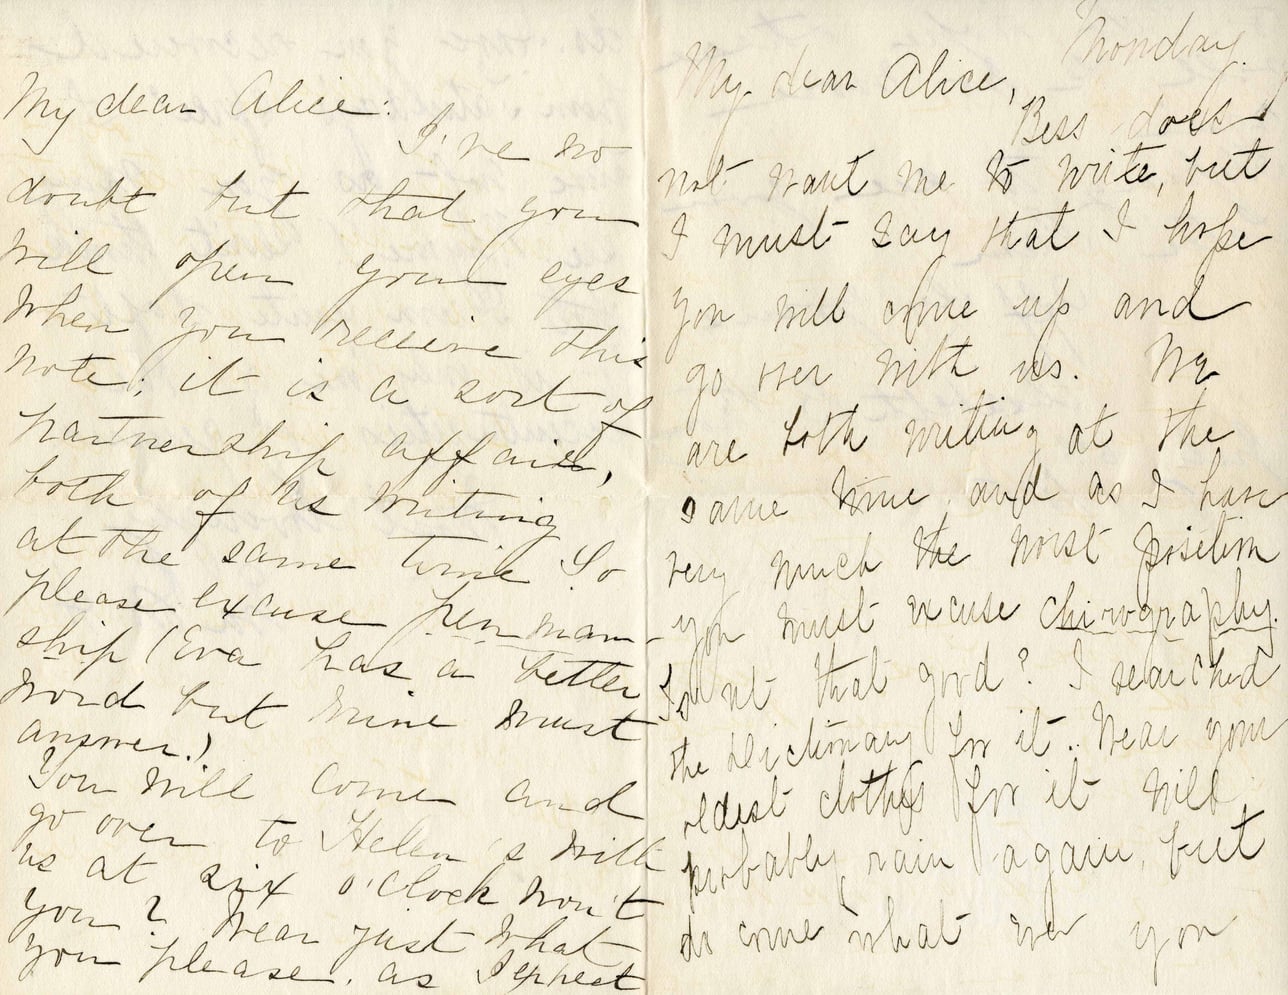 My dear Alice:
I've no
doubt but that you
will open your eyes
when you receive this
note; it is a sort of
partnership affair,
both of us writing
at the same time So
please excuse penman-
ship (Eva has a better
word but mine must
answer.)
You will come and
go over to Helen's with
us at six o'clock won't
you? Wear just what
you please, as I expect
Monday.
My dear Alice,
Bess does
not want me to write, but
I must say that I hope
you will come up and
go over with us. We
are both writing at the
same time, and as I have
very much the worst position
you must excuse chirography.
Isn't that good? I searched
the dictionary for it. Wear your
oldest clothes for it will
probably rain again, but
do come what ever you